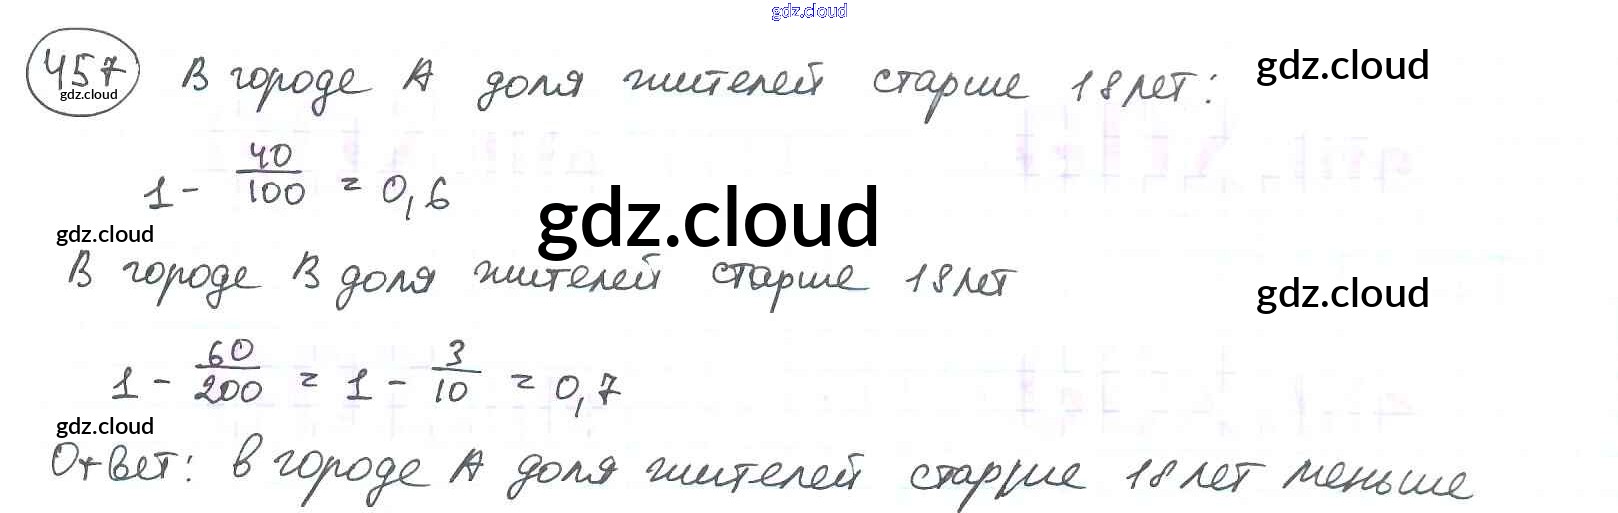 gdz.cloud
457 В городе А доля жителей старше 18 лет: gdz.cloud
gdz.cloud
1 - 40/100 = 0,6
gdz.cloud
gdz.cloud
В городе В доля жителей старше 18 лет
gdz.cloud
1 - 60/200 = 1 - 3/10 = 0,7
gdz.cloud
Ответ: в городе А доля жителей старше 18 лет меньше